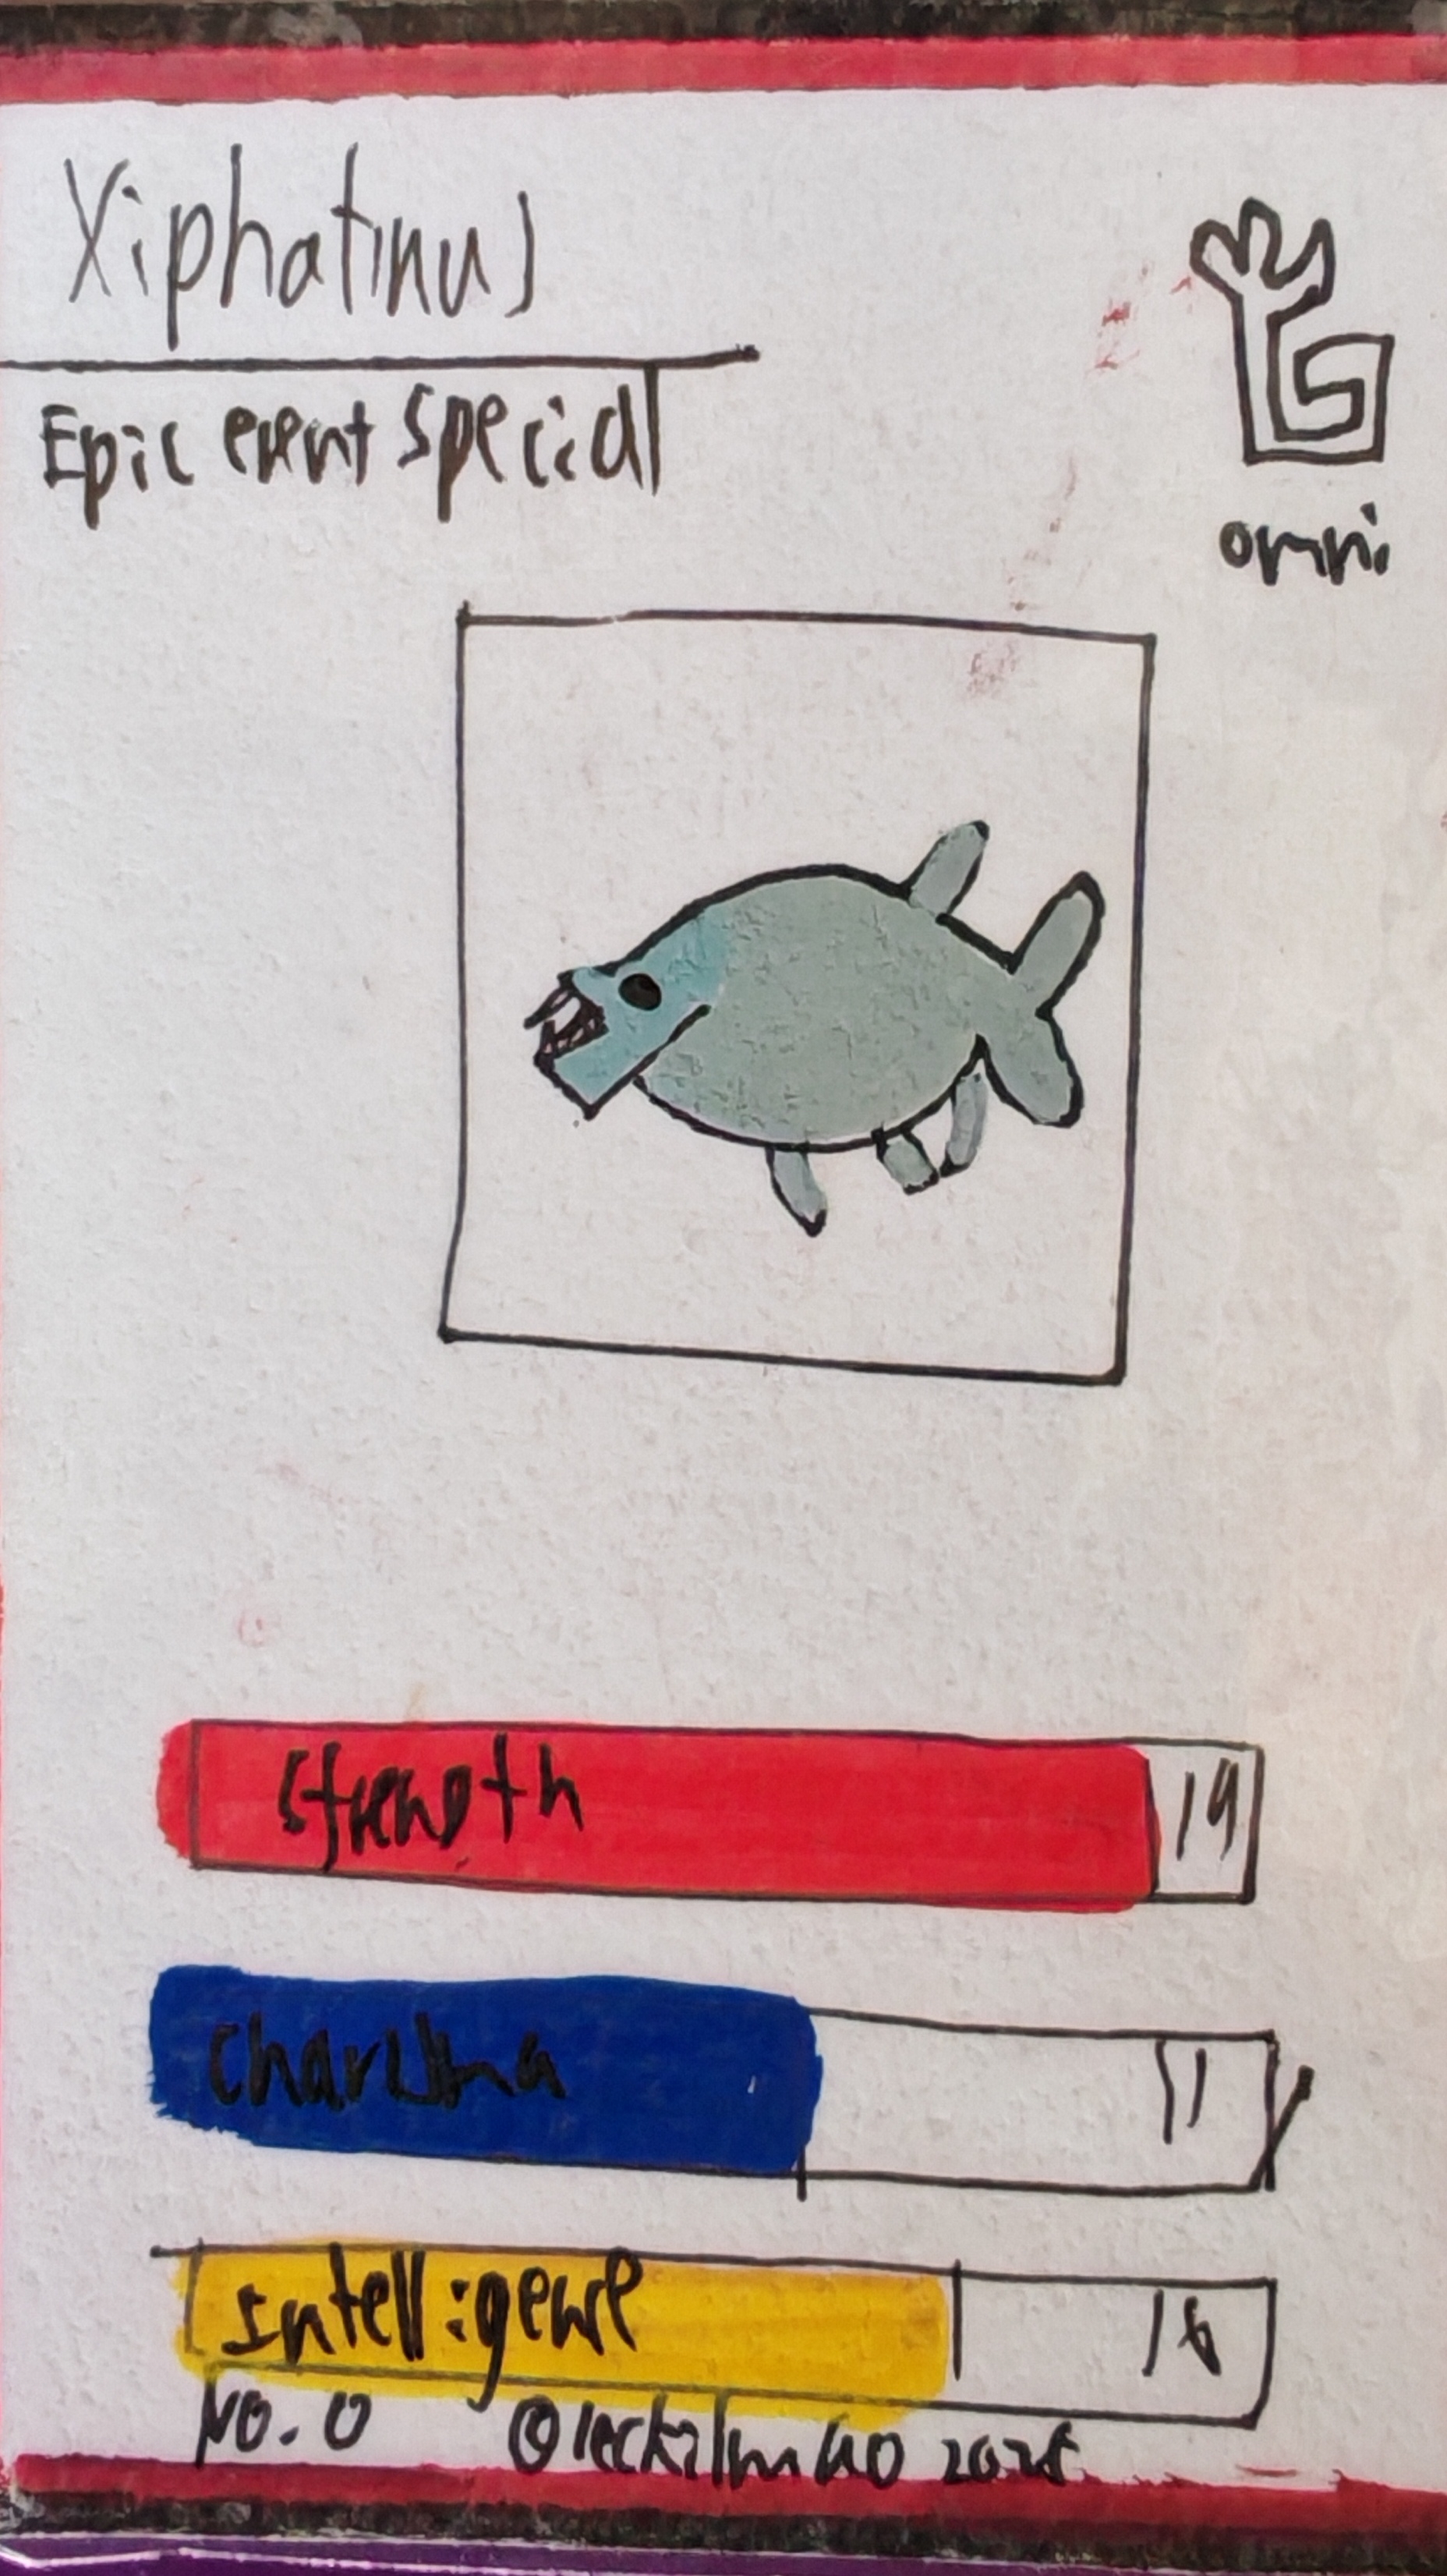 Xiphatinus
Epic event special
omni
strength 19
charisma 11
Intelligence 16
No. 0 © 2025